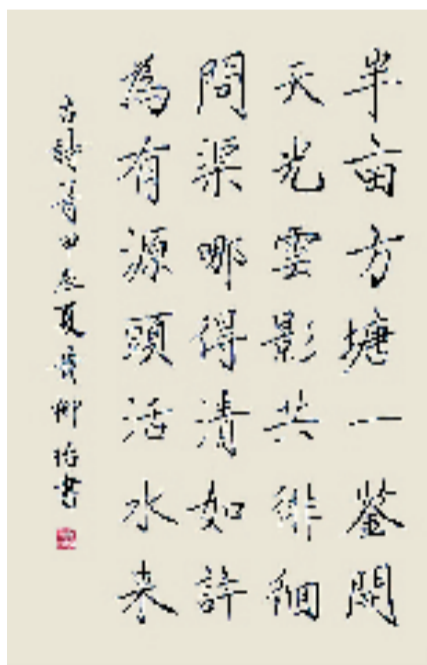 半亩方塘一鉴開
天光雲影共徘徊
問渠哪得清如許
為有源頭活水来
古詩一首甲辰夏書